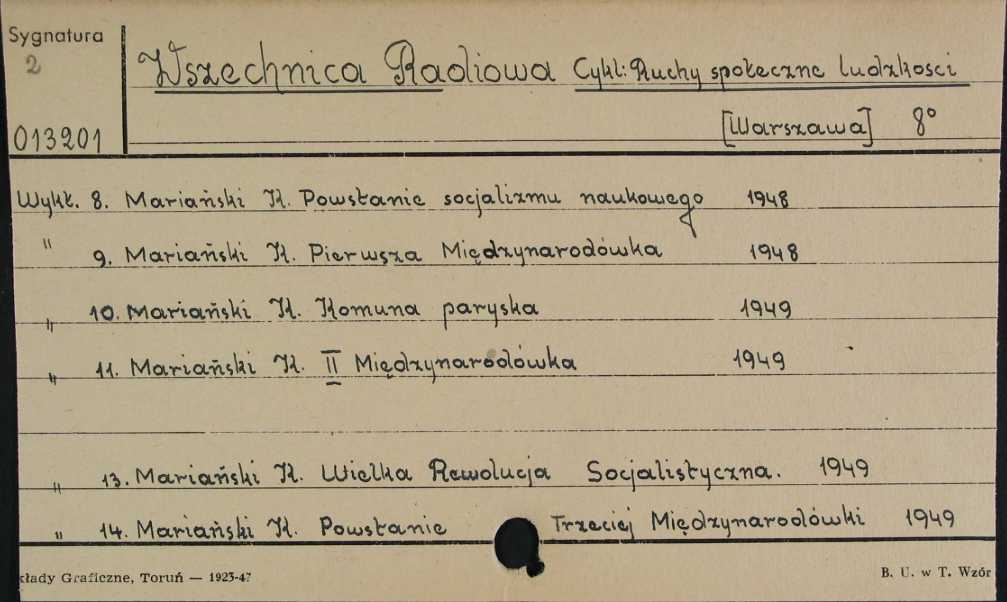 Sygnatura
2
013201
Wszechnica Radiowa Cykl: Ruchy społeczne ludzkości
[Warszawa] 8°
Wykł. 8. Mariański K. Powstanie socjalizmu naukowego 1948
" 9. Mariański K. Pierwsza Międzynarodówka 1948
" 10. Mariański K. Komuna paryska 1949
" 11. Mariański K. II Międzynarodówka 1949
" 13. Mariański K. Wielka Rewolucja Socjalistyczna. 1949
" 14. Mariański K. Powstanie Trzeciej Międzynarodówki 1949
kłady Graficzne, Toruń — 1923-47
B. U. w T. Wzór